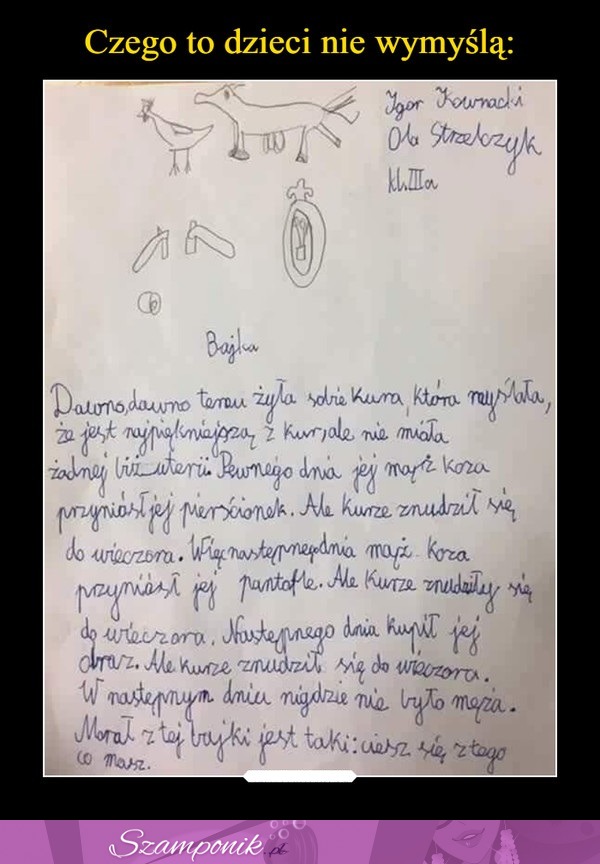 Czego to dzieci nie wymyślą:
Igor Kownacki
Ola Strzelczyk
kl. III a
Bajka
Dawno, dawno temu żyła sobie kura, która myślała,
że jest najpiękniejszą z kur, ale nie miała
żadnej biżuterii. Pewnego dnia jej mąż koza
przyniósł jej pierścionek. Ale kurze znudził się
do wieczora. Więc następnego dnia mąż koza
przyniósł jej pantofle. Ale kurze znudziły się
do wieczora. Następnego dnia kupił jej
obraz. Ale kurze znudził się do wieczora.
W następnym dniu nigdzie nie było męża.
Morał z tej bajki jest taki: ciesz się z tego
co masz.
Szamponik.pl